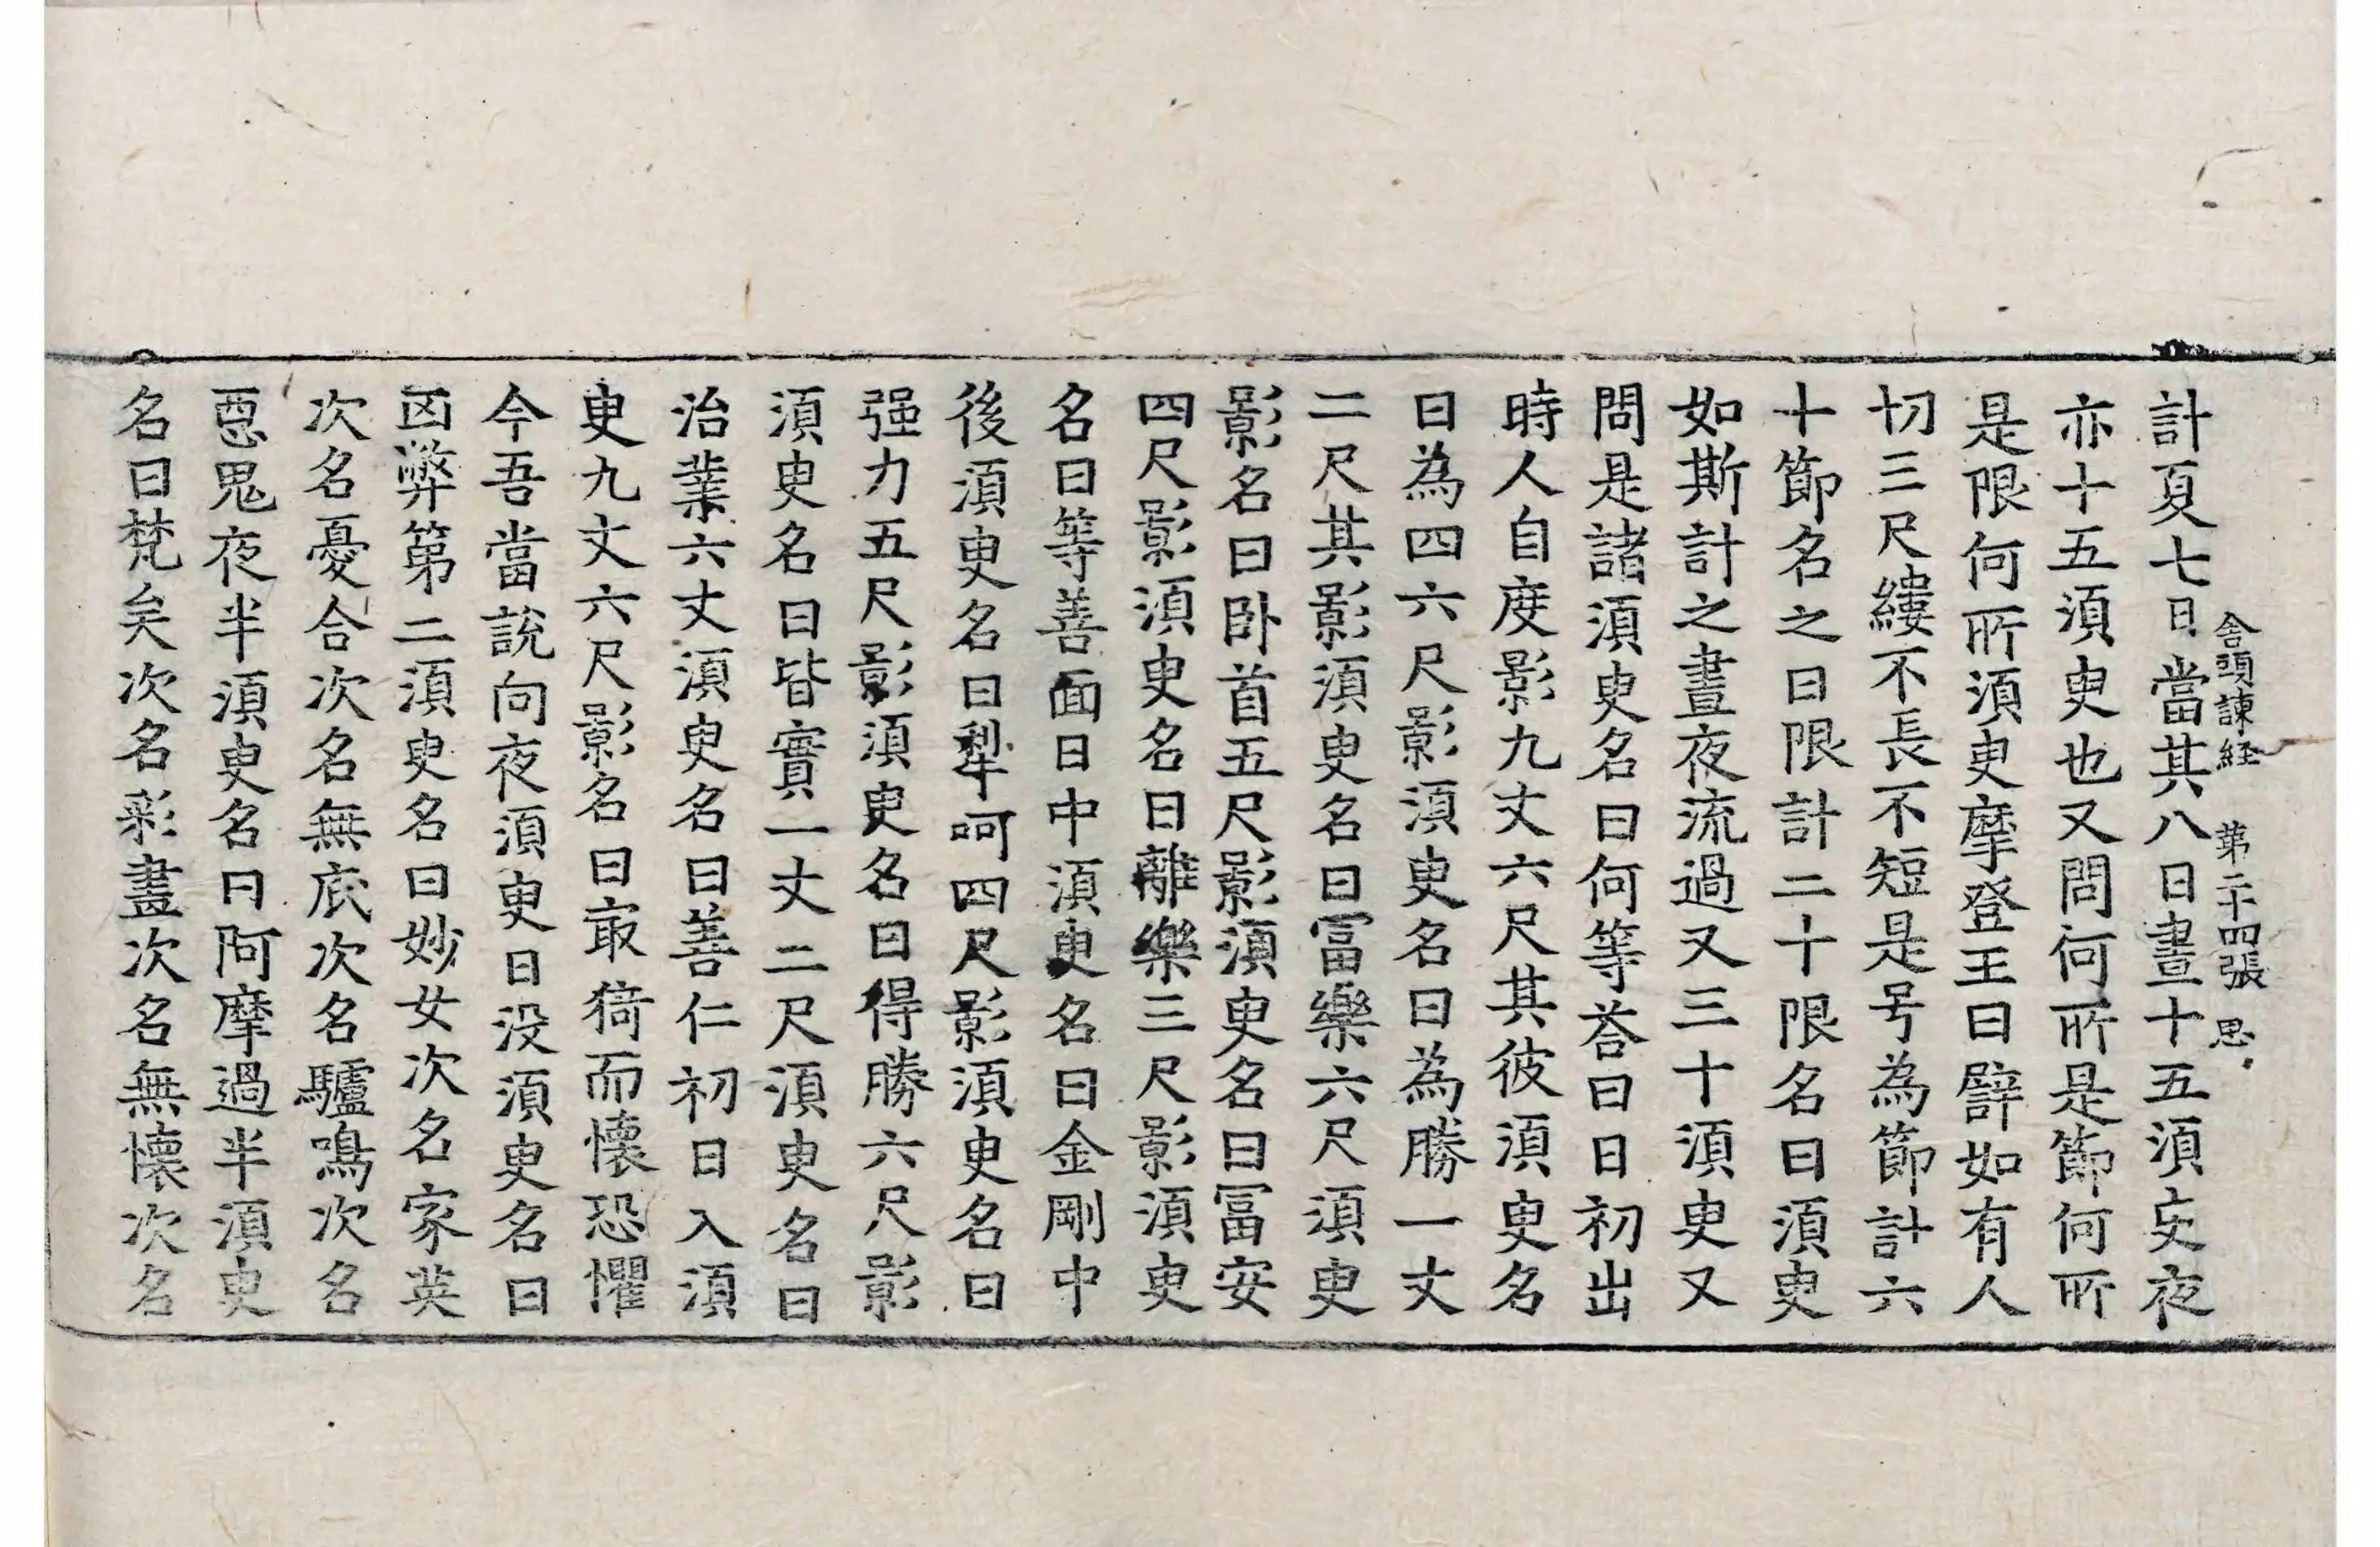 計夏七日當其八日晝十五須臾夜
舎頭諫経　第二十四張　思
亦十五須臾也又問何所是節何所
是限何所須臾摩登王曰譬如有人
切三尺縷不長不短是号為節計六
十節名之曰限計二十限名曰須臾
如斯計之晝夜流過又三十須臾又
問是諸須臾名曰何等荅曰日初出
時人自度影九丈六尺其彼須臾名
曰為四六尺影須臾名曰為勝一丈
二尺其影須臾名曰冨樂六尺須臾
影名曰卧首五尺影須臾名曰冨安
四尺影須臾名曰離樂三尺影須臾
名曰等善面日中須臾名曰金剛中
後須臾名曰犁呵四尺影須臾名曰
强力五尺影須臾名曰得勝六尺影
須臾名曰皆實一丈二尺須臾名曰
治業六丈須臾名曰善仁初日入須
臾九丈六尺影名曰㝡猗而懷恐懼
今吾當說向夜須臾日没須臾名曰
凶弊第二須臾名曰妙女次名家英
次名憂合次名無底次名驢鳴次名
惡鬼夜半須臾名曰阿摩過半須臾
名曰梵矣次名彩畫次名無懷次名